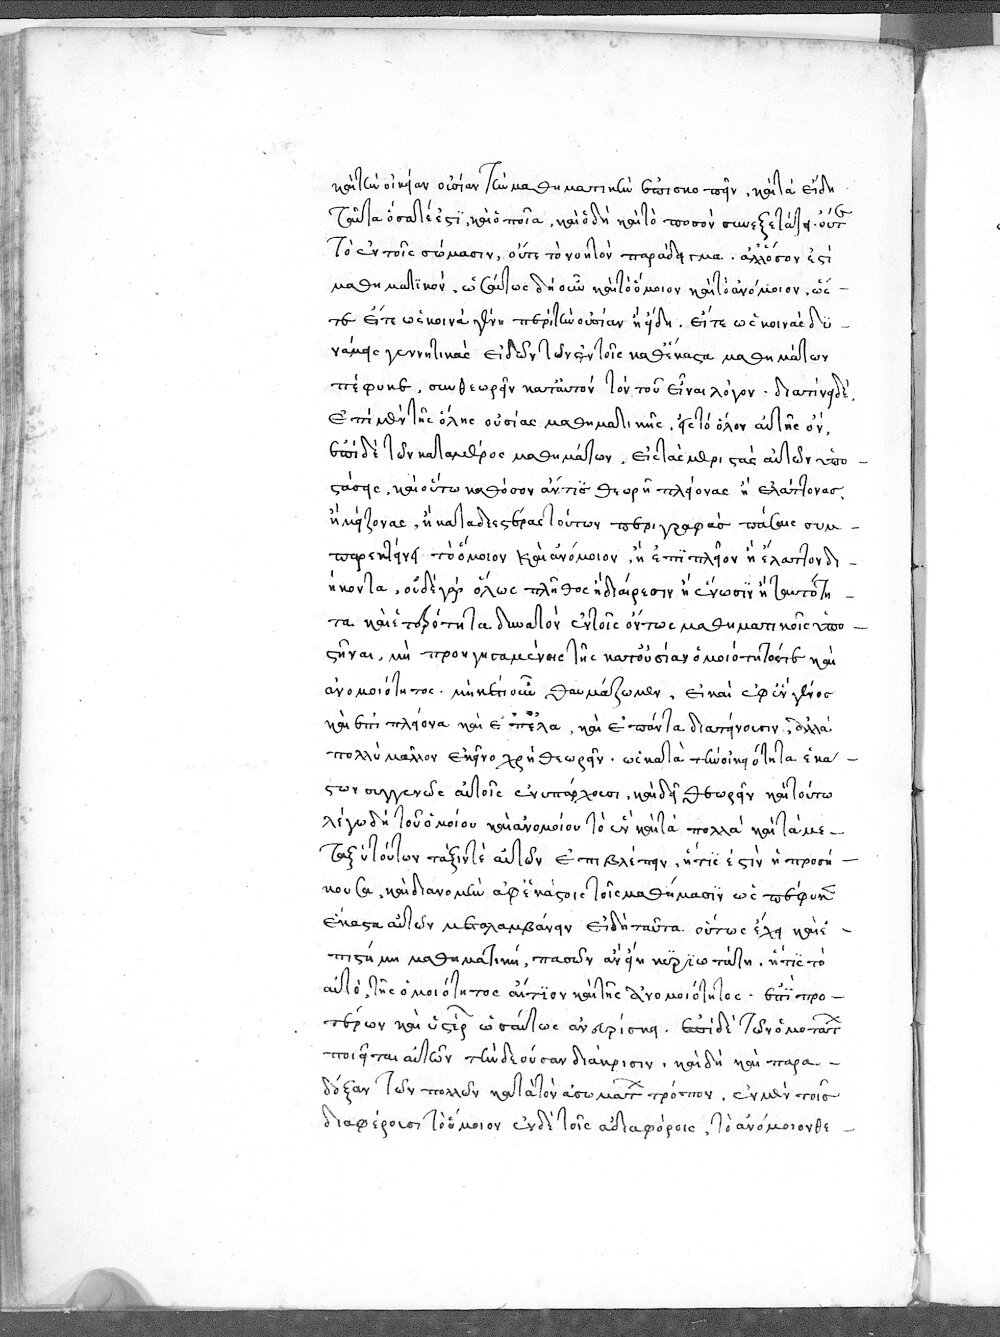 καὶ τὴν οἰκείαν οὐσίαν τῶν μαθηματικῶν ἐπισκοπεῖν, κατὰ εἴδη
ταῦτα ὁσαπέρ ἐστι, καὶ ὁποῖα, καὶ ὁ δὴ καὶ τὸ ποσὸν συνεξετάζει. οὔτε
τὸ ἐν τοῖς σώμασιν, οὔτε τὸ νοητὸν παράδειγμα. ἀλλ' ὅσον ἐστὶ
μαθηματικὸν. ὡσαύτως δὴ οὖν καὶ τὸ ὅμοιον καὶ τὸ ἀνόμοιον, ὥς –
τε εἴτε ὡς κοινὰ γένη περὶ τὴν οὐσίαν ἢ εἴδη. εἴτε ὡς κοινὰς δυ –
νάμεις γεννητικὰς εἰδῶν τῶν ἐν τοῖς καθ' ἕκαστα μαθημάτων
πέφυκε, συνθεωρεῖν κατ' αὐτὸν τὸν τοῦ εἶναι λόγον. διατείνει δὲ,
ἐπὶ μὲν τῆς ὅλης οὐσίας μαθηματικῆς, εἰς τὸ ὅλον αὐτῆς ὂν,
ἐπὶ δὲ τῶν κατὰ μέρος μαθημάτων, εἰς τὰς μεριστὰς αὐτῶν ὑπο –
στάσεις, καὶ οὕτω καθόσον ἄν τις θεωρῇ πλείονας ἢ ἐλάττονας,
ἢ μείζονας, ἢ καταδεεστέρας τούτων περιγραφὰς πάσαις συμ –
παρεκτείνει τὸ ὅμοιον καὶ ἀνόμοιον, ἢ ἐπὶ πλεῖον ἢ ἔλαττον δι –
ήκοντα, οὐδὲ γὰρ ὅλως πλῆθος ἢ διαίρεσιν ἢ ἕνωσιν ἢ ταυτότη –
τα καὶ ἑτερότητα δυνατὸν ἐν τοῖς ὄντως μαθηματικοῖς ὑπο –
στῆναι, μὴ προηγησαμένης τῆς κατ' οὐσίαν ὁμοιότητός τε καὶ
ἀνομοιότητος. μηκέτι οὖν θαυμάζωμεν, εἰ καὶ ἐφ' ἓν γένος
καὶ ἐπὶ πλείονα καὶ ἐπ' ἔλα, καὶ ἐπὶ πάντα διατείνουσιν, ἀλλὰ
πολλῷ μᾶλλον ἐκεῖνο χρὴ θεωρεῖν. ὡς κατὰ τὴν οἰκειότητα ἑκά –
στων συγγενῶς αὐτοῖς ἐνυπάρχουσι, καὶ δεῖ θεωρεῖν καὶ τούτω
λέγω δὴ τοῦ ὁμοίου καὶ ἀνομοίου τὸ ἓν καὶ τὰ πολλὰ καὶ τὰ με –
ταξὺ τούτων τάξιν τὲ αὐτῶν ἐπιβλέπειν, ἥτις ἐστὶν ἡ προσή –
κουσα, καὶ διανομὴν ἀφ' ἑκάστοις τοῖς μαθήμασιν ὡς πέφυκεν
ἕκαστα αὐτῶν μεταλαμβάνειν εἴδη ταῦτα. οὕτως ἔχει καὶ ἐ –
πιστήμη μαθηματικὴ, πασῶν ἂν εἴη κυριωτάτη. ἥτις τὸ
αὐτὸ, τῆς ὁμοιότητος αἴτιον καὶ τῆς ἀνομοιότητος. ἐπὶ προ –
τέρων καὶ ὑστέρων ὡσαύτως ἀνευρίσκει. ἐπὶ δὲ τῶν ὁμοταγῶν
ποιεῖται αὐτῶν τὴν δέουσαν διάκρισιν, καὶ δὴ καὶ παρα –
δόξαν τῶν πολλῶν κατὰ τὸν ἀσώματον τρόπον, ἐν μὲν τοῖς
διαφέρουσι τὸ ὅμοιον ἐν δὲ τοῖς ἀδιαφόροις, τὸ ἀνόμοιον θε –